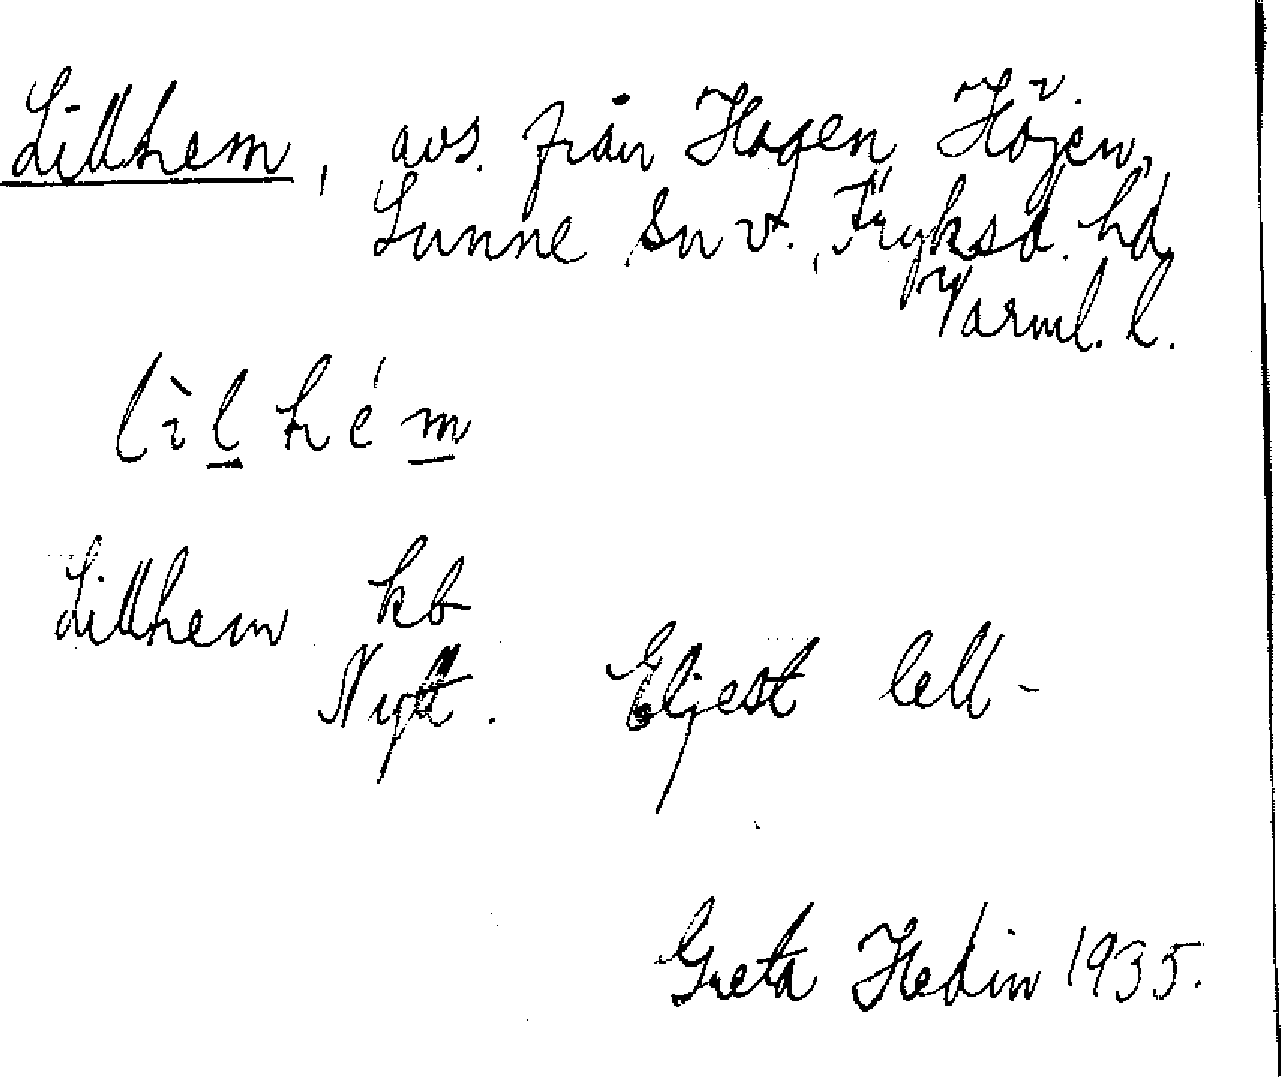 Lillhem, avs. från Hagen Höjen,
Sunne sn v., Fryksd. hd,
Värml. l.
lìlhém
Lillhem kb
Nytt. Eljest lell-
Greta Hedin 1935.